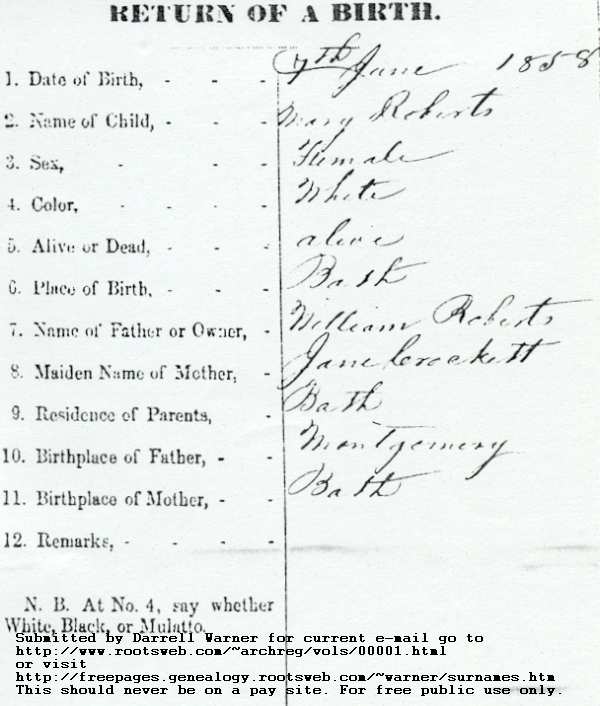 RETURN OF A BIRTH.
1. Date of Birth, - - - 7th June 1858
2. Name of Child, - - - Mary Roberts
3. Sex, - - - Female
4. Color, - - - - White
5. Alive or Dead, - - - alive
6. Place of Birth, - - - Bath
7. Name of Father or Owner, - William Roberts
8. Maiden Name of Mother, - Jane Crockett
9. Residence of Parents, - Bath
10. Birthplace of Father, - - Montgomery
11. Birthplace of Mother, - - Bath
12. Remarks, - - - -
N. B. At No. 4, say whether
White, Black, or Mulatto.
Submitted by Darrell Warner for current e-mail go to
http://www.rootsweb.com/~archreg/vols/00001.html
or visit
http://freepages.genealogy.rootsweb.com/~warner/surnames.htm
This should never be on a pay site. For free public use only.